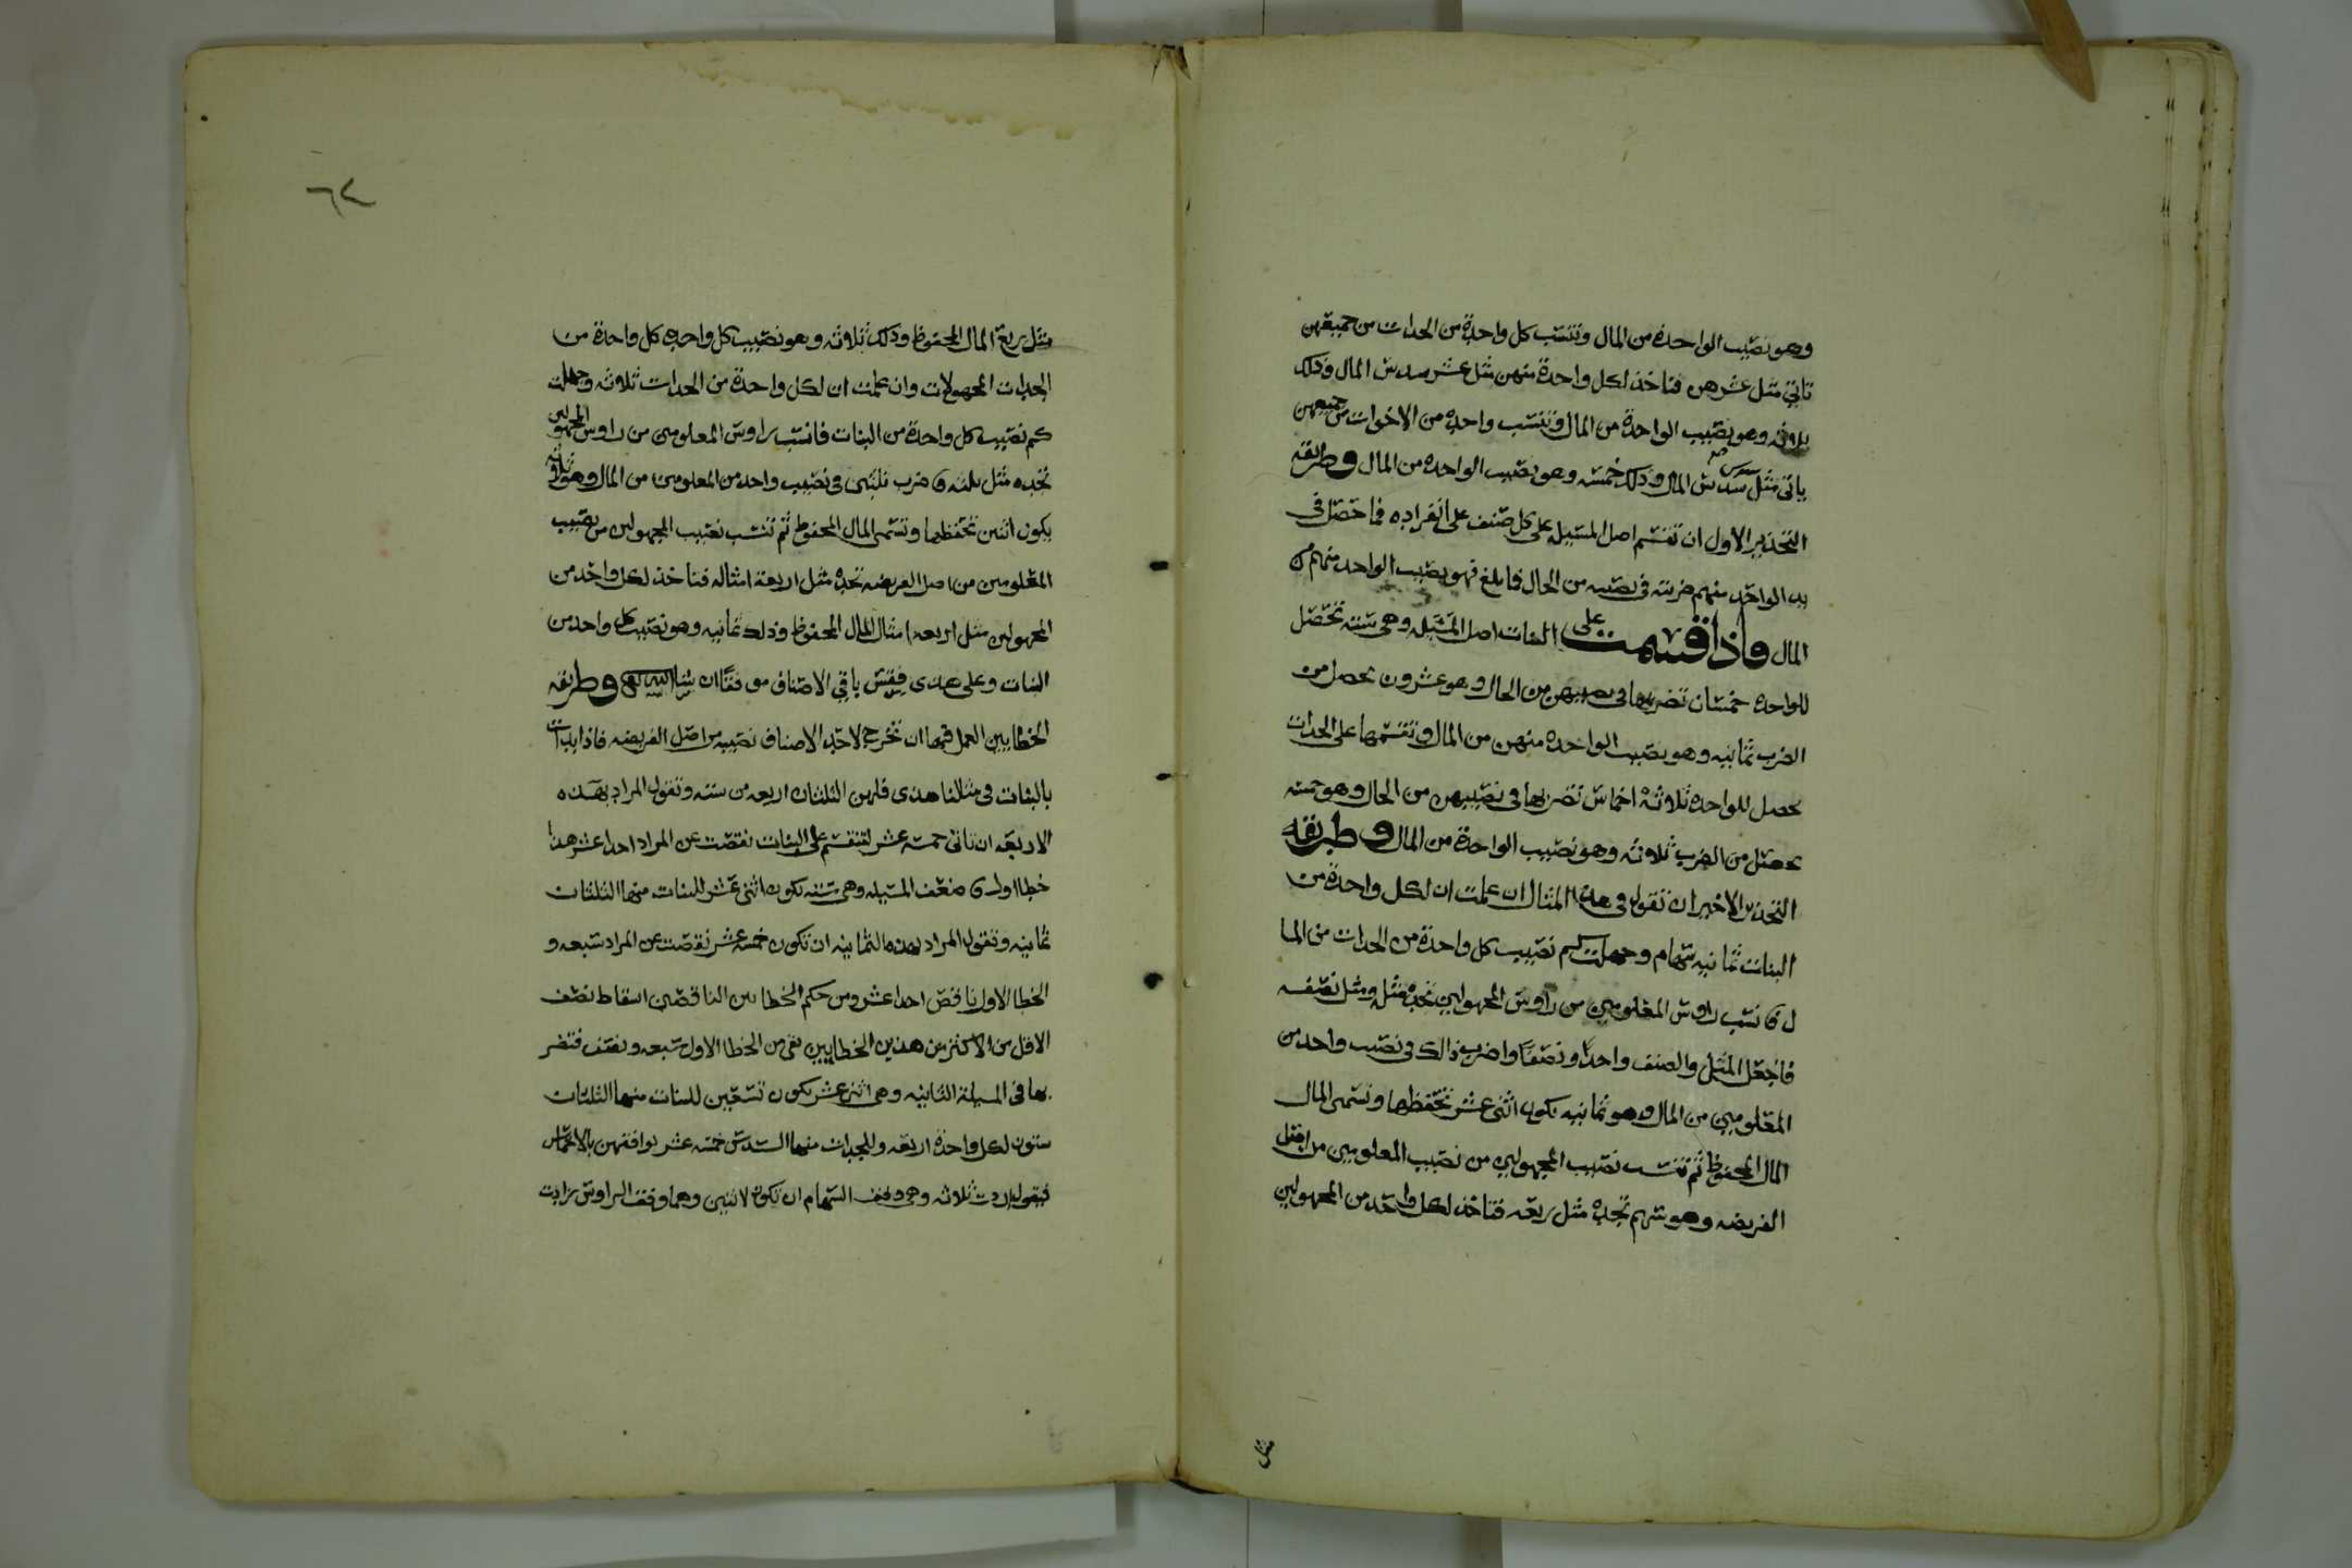 وهو نصيب الواحدة من المال وتنسب كل واحدة من الجدات من جميعهن
تاتي مثل عشرهن فتاخذ لكل واحدة منهن مثل عشر سدس المال وذلك
ثلاثه وهو نصيب الواحدة من المال وتنسب واحده من الاخوات من جميعهن
ياتي مثل سدس المال وذلك خمسه وهو نصيب الواحده من المال وطريقه
التحذير الاول ان تقسم اصل المسيله على كل صنف على انفراده فما حصل في
يد الواحد منهم ضربته في نصيبه من الحال فما بلغ فهو نصيب الواحد منهم من
المال فاذا قسمت على البنات اصل المسيله وهي سته تحصل
للواحده خمسان تضربها في نصيبهن من الحال وهو عشرون يحصل من
الضرب ثمانيه وهو نصيب الواحده منهن من المال وتقسمها على الجدات
يحصل للواحده ثلاثة اخماس تضربها في نصيبهن من الحال وهو خمسه
يحصل من الضرب ثلاثه وهو نصيب الواحدة من المال وطريقه
التحذير الاخير ان تقول في هذا المثال ان علمت ان لكل واحدة من
البنات ثمانيه سهام وجهلت كم نصيب كل واحدة من الجدات من الما
ل فانسب راوس المعلومين من راوس المجهولين تجده مثله ومثل نصفه
فاجعل المثل والنصف واحدًا ونصفًا واضرب ذالك في نصيب واحد من
المعلومين من المال وهو ثمانيه يكون اثنى عشر تحفظها وتسمى المال
المال المحفوظ ثم تنسب نصيب المجهولين من نصيب المعلومين من اصل
الفريضه وهو سهم تجده مثل ربعه فتاخذ لكل واحد من المجهولين
مثل
٦٢
مثل ربع المال المحفوظ وذلك ثلاثه وهو نصيب كل واحده كل واحدة من
الجدات المجهولات وان علمت ان لكل واحدة من الجدات ثلاثه وجهلت
كم نصيب كل واحدة من البنات فانسب راوس المعلومين من راوس المجهولين
تجده مثل ثلثيه فاضرب ثلثين في نصيب واحد من المعلومين من المال وهو ثلاثه
يكون اثنين تحفظها وتسمى المال المحفوظ ثم تنسب نصيب المجهولين من نصيب
المعلومين من اصل الفريضه تجده مثل اربعة امثاله فتاخذ لكل واحد من
المجهولين مثل اربعه امثال المال المحفوظ وذلك ثمانيه وهو نصيب كل واحد من
البنات وعلى هذى فقس باقي الاصناف موفقًا ان شا الله تعالى وطريقه
الخطايين العمل فيها ان تخرج لاحد الاصناف نصيبه من اصل الفريضه فاذا بدات
بالبنات في مثالنا هذى فلهن الثلثان اربعه من سته وتقول المراد بهذه
الاربعه ان تاتي خمسه عشر لتنقسم على البنات نقصت عن المراد احدا عشر هذا
خطا اول فاضعف المسيله وهي سته يكون اثنى عشر للبنات منها الثلثان
ثمانيه وتقول المراد بهذه الثمانيه ان تكون خمسه عشر نقصت عن المراد سبعه و
الخطا الاول ناقص احدا عشر ومن حكم الخطايين الناقصين اسقاط نصف
الاقل من الاكثر من هذين الخطايين بقي من الخطا الاول سبعه ونصف فتضر
بها في المسيلة الثانيه وهي اثنى عشر يكون تسعين للبنات منها الثلثان
ستون لكل واحدة اربعه وللجدات منها السدس خمسه عشر توافقهن بالاخماس
فيقول اردت ثلاثه وهي وفق السهام ان تكون لاثنين وهما وفق الراوس زادت